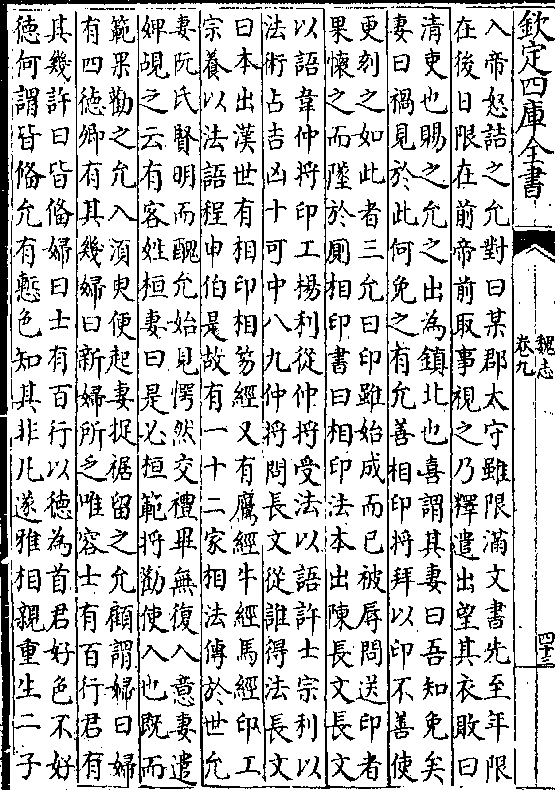 欽定四庫全書
魏志
卷九
四十三
入帝怒詰之允對曰某郡太守雖限滿文書先至年限
在後日限在前帝前取事視之乃釋遣出望其衣敗曰
清吏也賜之允之出為鎮北也喜謂其妻曰吾知免矣
妻曰禍見於此何免之有允善相印將拜以印不善使
更刻之如此者三允曰印雖始成而已被辱問送印者
果懷之而墜於厠相印書曰相印法本出陳長文長文
以語韋仲將印工楊利從仲將受法以語許士宗利以
法術占吉凶十可中八九仲將問長文從誰得法長文
曰本出漢世有相印相笏經又有鷹經牛經馬經印工
宗養以法語程申伯是故有一十二家相法傳於世允
妻阮氏賢明而醜允始見愕然交禮畢無復入意妻遣
婢覘之云有客姓桓妻曰是必桓範將勸使入也既而
範果勸之允入須臾便起妻捉裾留之允顧謂婦曰婦
有四徳卿有其幾婦曰新婦所乏唯容士有百行君有
其幾許曰皆備婦曰士有百行以徳為首君好色不好
徳何謂皆備允有慙色知其非凡遂雅相親重生二子